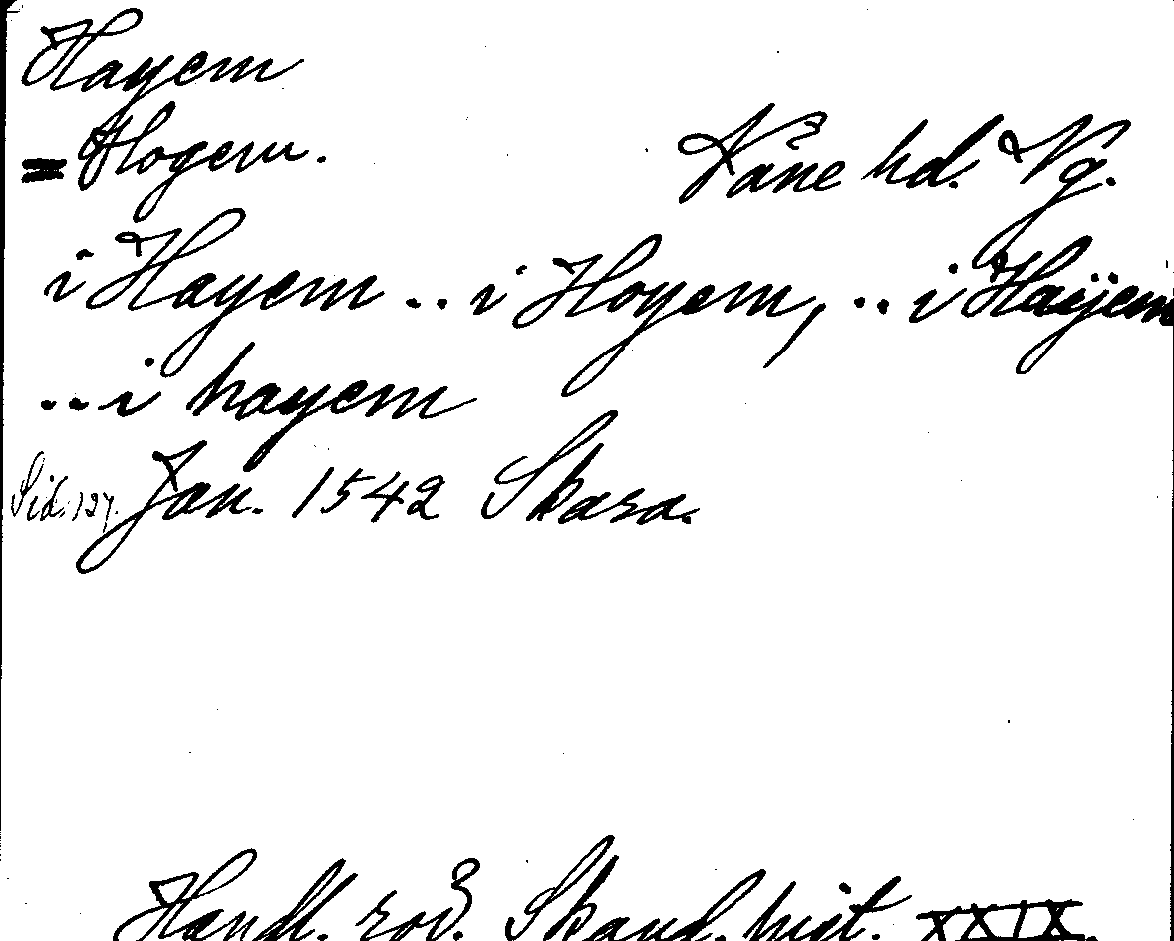 Hayem
= Hogem. Våne hd. Vg.
i Hayem .. i Hoyem, .. i Haÿem
.. i hayem
Sid. 127. Jan. 1542 Skara.
Handl. rör. Skand. hist. XXIX.